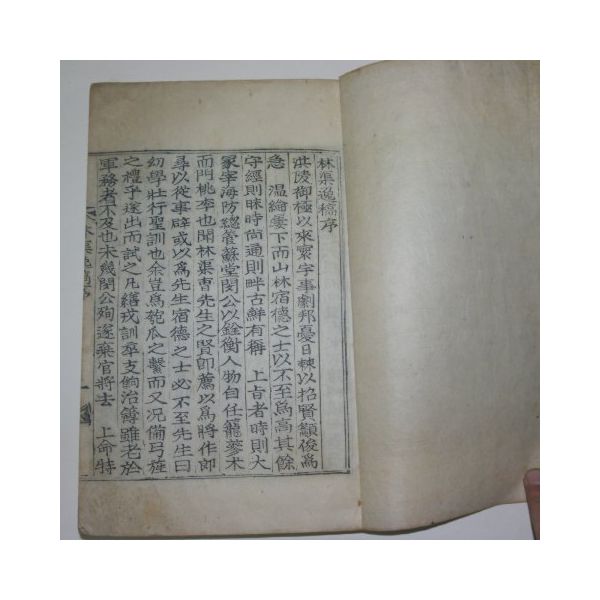 林渠逸稿序
洪陵御極以來寰宇事劇邦憂日棘以招賢籲俊爲
急 溫綸屢下而山林宿德之士以不至爲高其餘
守經則昧時尚通則畔古鮮有稱 上旨者時則大
冢宰海防總管蘇堂閔公以銓衡人物自任籠蔘朮
而門桃李也聞林渠曺先生之賢卽薦以爲將作郎
尋以從事辟或以爲先生宿德之士必不至先生曰
幼學壯行聖訓也余豈爲匏瓜之繫而又况備弓旌
之禮乎遂出而試之凡繕戎訓卒支餉治簿雖老於
軍務者不及也未幾閔公殉遂棄官將去 上命特
林渠逸稿序 一